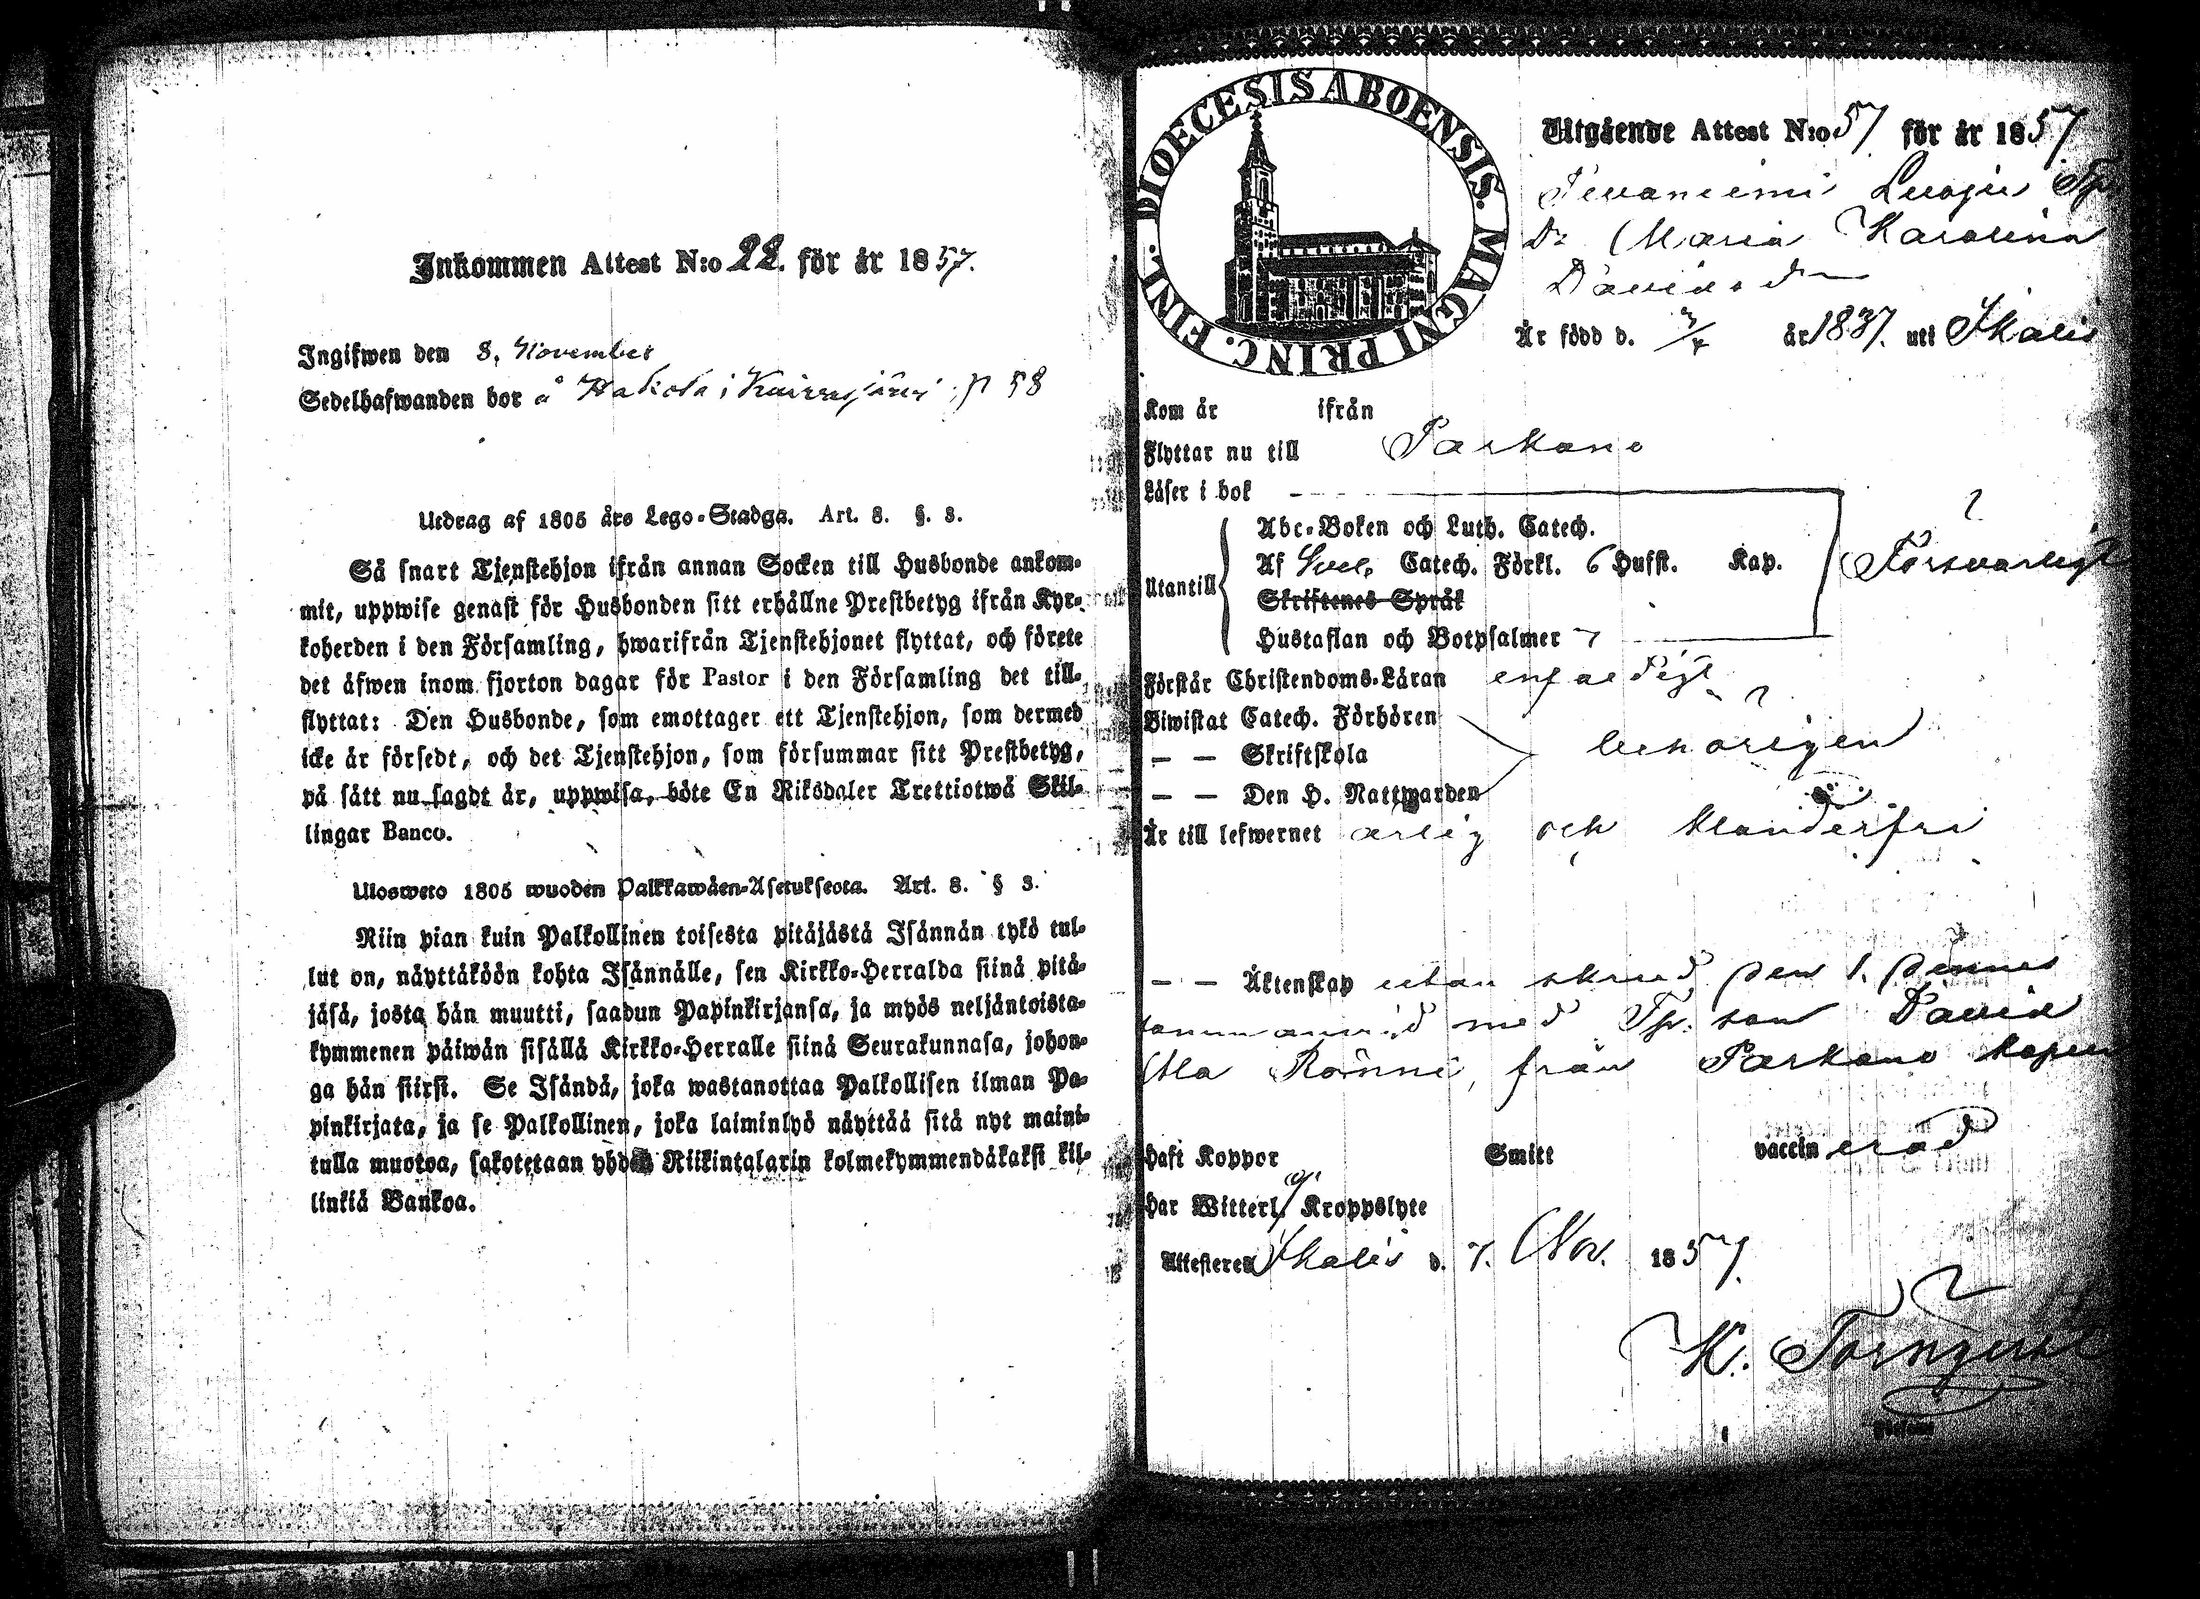 Inkommen Attest N:o 22. för år 1857.
Ingifwen den 8. November
Sedelhafwanden bor å Hakola i Kuivasjärvi p 58
Utdrag af 1805 års Lego-Stadga. Art. 8. §. 3.
Så snart Tjenstehjon ifrån annan Socken till Husbonde ankom-
mit, uppwise genast för Husbonden sitt erhållne Prestbetyg ifrån Kyr-
koherden i den Församling, hwarifrån Tjenstehjonet flyttat, och förete
det äfwen inom fjorton dagar för Pastor i den Församling det till-
flyttat: Den Husbonde, som emottager ett Tjenstehjon, som dermed
icke är försedt, och det Tjenstehjon, som försummar sitt Prestbetyg,
på sätt nu sagdt är, uppwisa, böte En Riksdaler Trettiotwå Skil-
lingar Banco.
Uloswetο 1805 wuoden Palkkawäen-Asetuksesta. Art. 8. § 3.
Niin pian kuin Palkollinen toisesta pitäjästä Isännän tykö tul-
lut on, näyttäköön kohta Isännälle, sen Kirkko-Herralda siinä pitä-
jäsä, josta hän muutti, saadun Papinkirjansa, ja myös neljäntoista-
kymmenen päiwän sisällä Kirkko-Herralle siinä Seurakunnasa, johon-
ga hän siirsi. Se Isändä, joka wastanottaa Palkollisen ilman Pa-
pinkirjata, ja se Palkollinen, joka laiminlyö näyttää sitä nyt maini-
tulla muotoa, sakotetaan yhden Riikintalarin kolmekymmendäkaksi kil-
linkiä Bankoa.
DIOECESIS ABOENSIS. MAGNI PRINC. FINL.
Utgående Attest N:o 57 för år 1857.
Luoju Tp
Dr Maria Karolina
Davidsdr
Är född d. 3/4 år 1837. uti Ikalis
Kom år ifrån
Flyttar nu till Parkano
Läser i bok
Utantill
Abc-Boken och Luth. Catech.
Af Svel. Catech. Förkl. 6 Hufst. Kap.
Skriftenes Språk
Hustaflan och Botpsalmer 7
Försvarligt
Förstår Christendoms-Läran enfaldigt
Biwistat Catech. Förhören
— — Skriftskola
— — Den H. Nattwarden
behörigen
Är till lefwernet ärlig och klanderfri
— — Äktenskap utan
med Tp. son David
Rönni, från Parkano
Haft Koppor Smitt vaccinerad
Har Witterl. Kroppslyte
Attesterer Ikalis d. 7. Nov. 1857.
K. Törnqvist